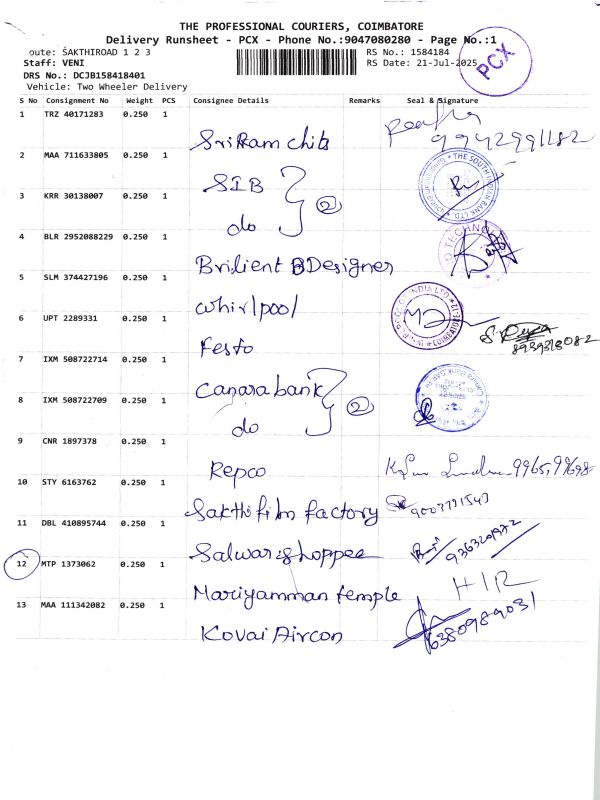 THE PROFESSIONAL COURIERS, COIMBATORE
Delivery Runsheet - PCX - Phone No.:9047080280 - Page No.:1
oute: SAKTHIROAD 1 2 3
RS No.: 1584184
Staff: VENI
RS Date: 21-Jul-2025
PCX
DRS No.: DCJB158418401
Vehicle: Two Wheeler Delivery
S No Consignment No Weight PCS Consignee Details Remarks Seal & Signature
1 TRZ 40171283 0.250 1
SriRam chits 9942991182
2 MAA 711633805 0.250 1
SIB
2
3 KRR 30138007 0.250 1
do
4 BLR 2952088229 0.250 1
Brilient BDesigner
5 SLM 374427196 0.250 1
Whirlpool
6 UPT 2289331 0.250 1
Festo 8939318082
7 IXM 508722714 0.250 1
Canara bank
2
8 IXM 508722709 0.250 1
do
9 CNR 1897378 0.250 1
Repco
10 STY 6163762 0.250 1
Sakthi film factory
11 DBL 410895744 0.250 1
Salwar shoppee
12 MTP 1373062 0.250 1
Mariyamman temple H/R
13 MAA 111342082 0.250 1
Kovai Aircon 6380989031